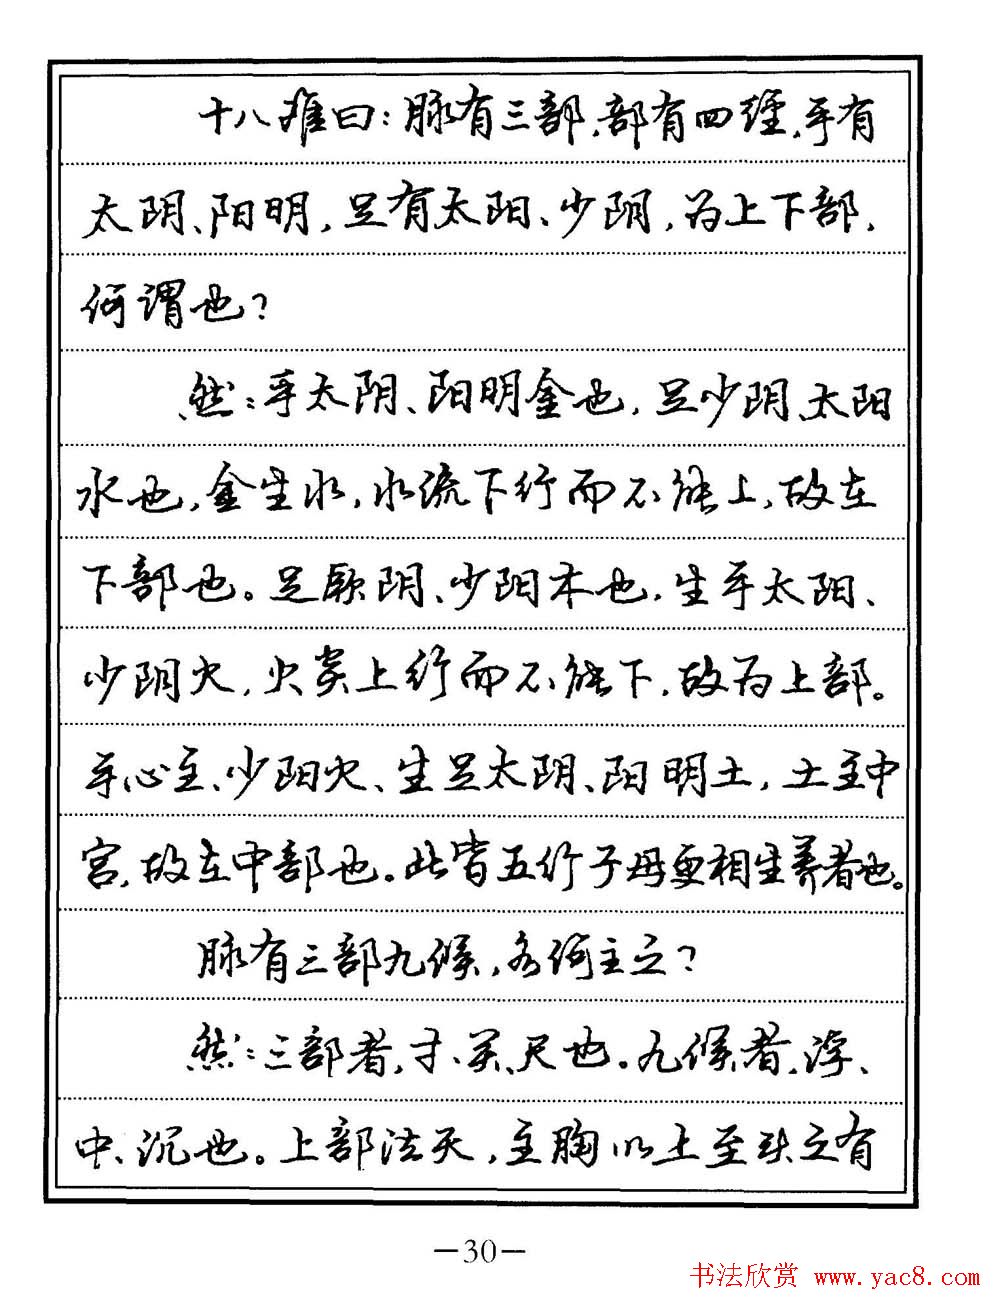 十八难曰：脉有三部，部有四经，手有
太阴、阳明，足有太阳、少阴，为上下部，
何谓也？
然：手太阴、阳明金也，足少阴、太阳
水也，金生水，水流下行而不能上，故在
下部也。足厥阴、少阳木也，生手太阳、
少阴火，火炎上行而不能下，故为上部。
手心主、少阳火、生足太阴、阳明土，土主中
宫，故在中部也。此皆五行子母更相生养者也。
脉有三部九候，各何主之？
然：三部者，寸、关、尺也。九候者，浮、
中、沉也。上部法天，主胸以上至头之有
—30—
书法欣赏 www.yac8.com